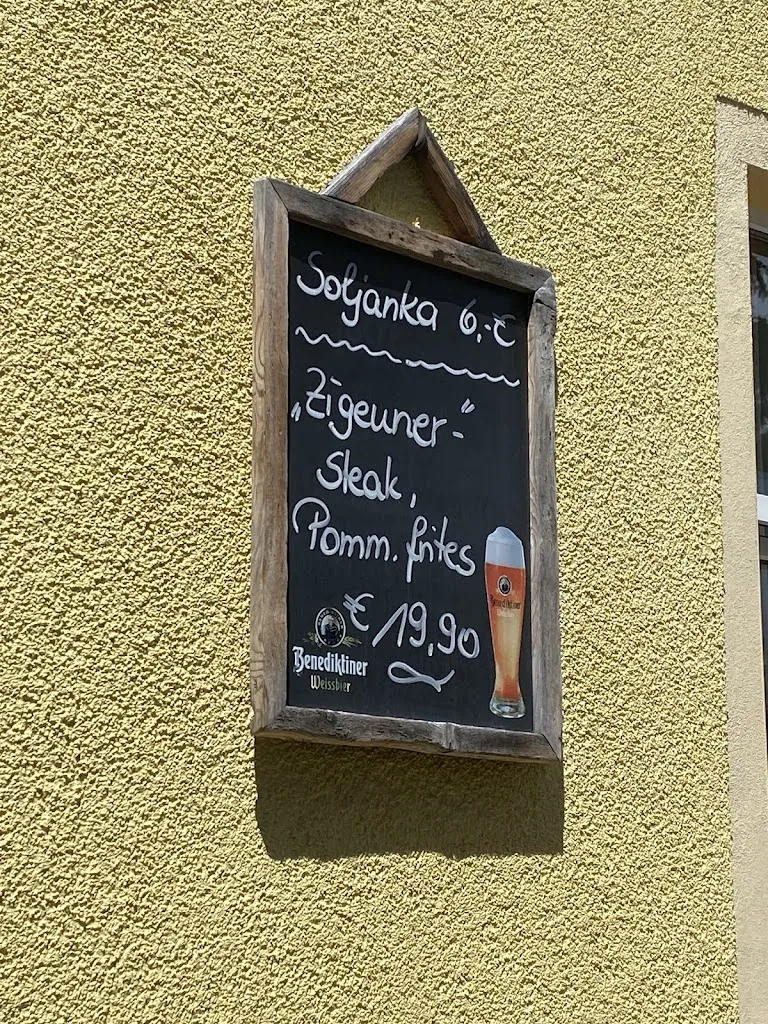 Soljanka 6,-€
„Zigeuner-“
Steak,
Pomm. frites
€ 19,90
Benediktiner
Weissbier
Benediktiner